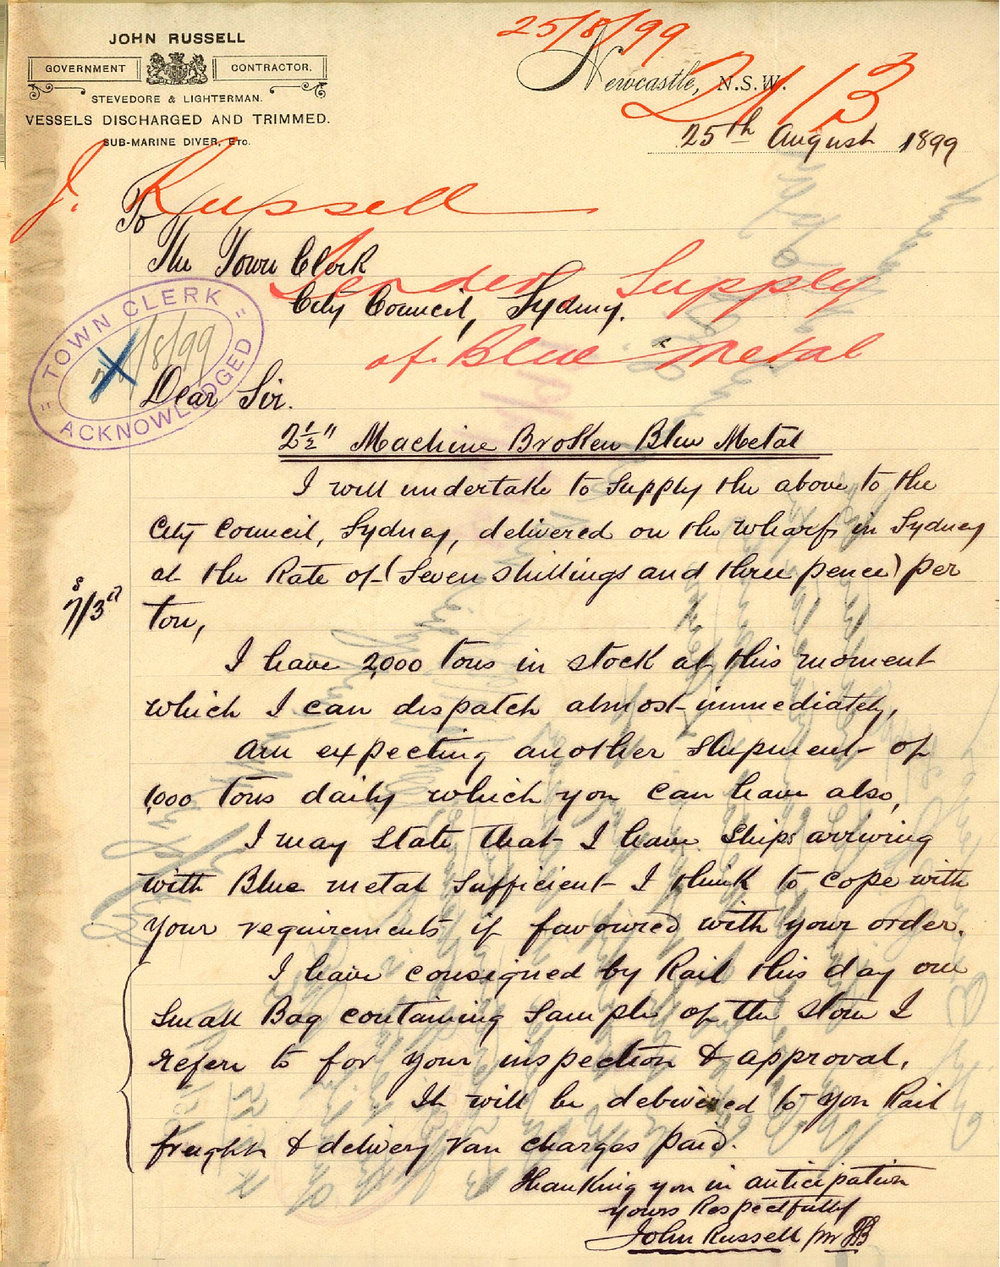 JOHN RUSSELL
GOVERNMENT CONTRACTOR.
STEVEDORE & LIGHTERMAN.
VESSELS DISCHARGED AND TRIMMED.
SUB-MARINE DIVER, ETC.
25/8/99
Newcastle, N.S.W.
25th August 1899
J. Russell
To
The Town Clerk
City Council, Sydney.
Tender Supply
of Blue Metal
"TOWN CLERK"
/8/99
ACKNOWLEDGED
Dear Sir.
2½" Machine Broken Blue Metal
I will undertake to supply the above to the
City Council, Sydney, delivered on the wharf in Sydney
at the Rate of (Seven shillings and three pence) per
s d
7/3
ton,
I have 2,000 tons in stock at this moment
which I can dispatch almost immediately,
am expecting another shipment of
1,000 tons daily which you can have also,
I may state that I have ships arriving
with Blue metal sufficient I think to cope with
your requirements if favoured with your order.
I have consigned by Rail this day one
small Bag containing sample of the stone I
refere to for your inspection & approval.
It will be delivered to you Rail
freight & delivery van charges paid.
Thanking you in anticipation
yours Respectfully
John Russell per JB